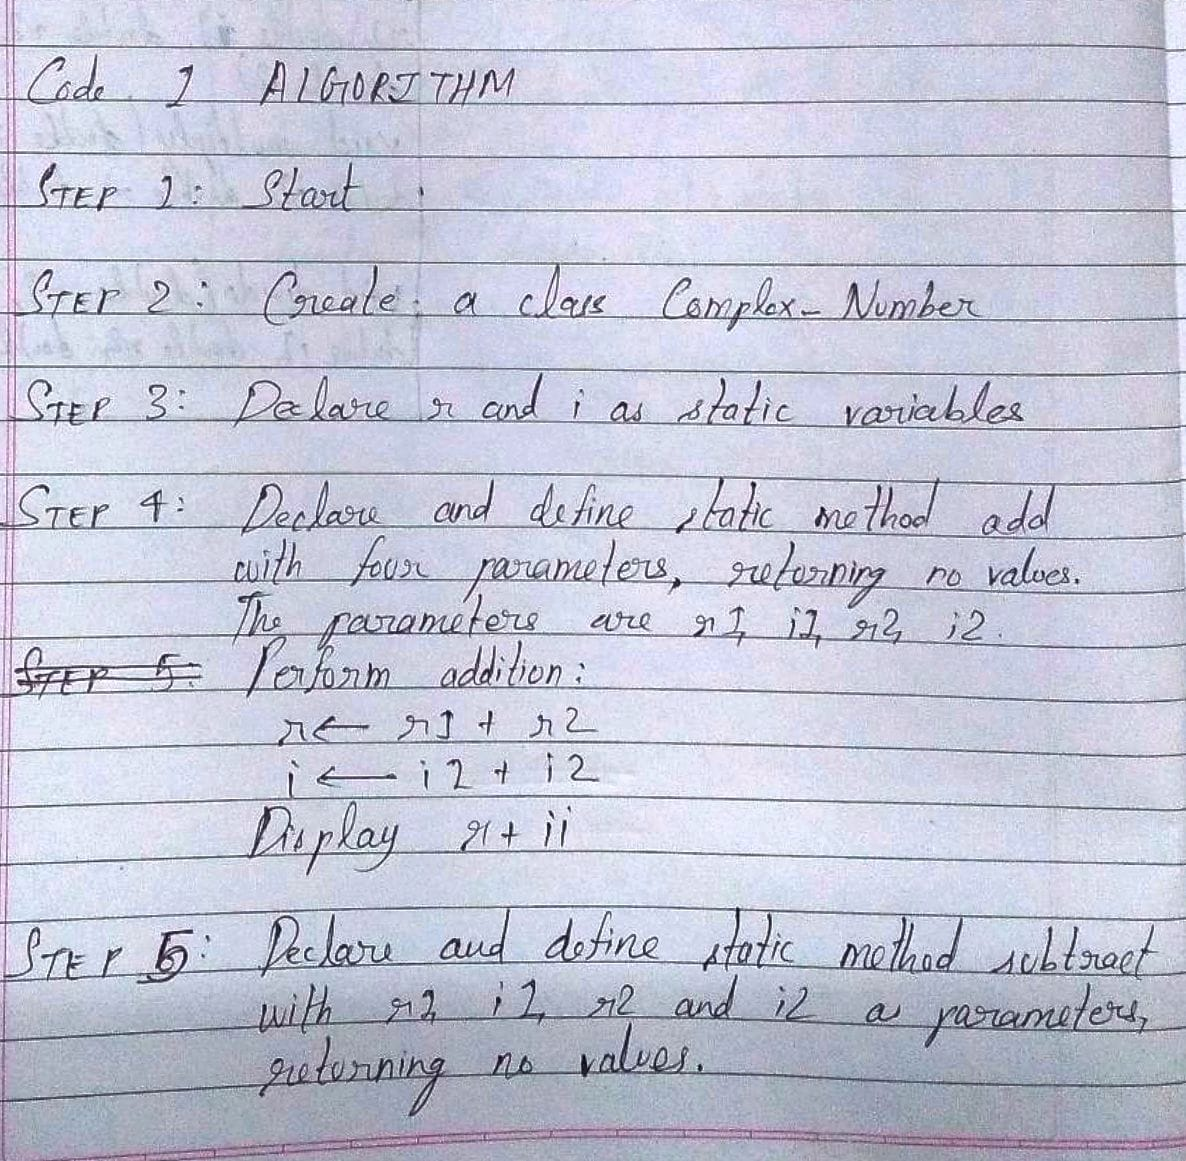 Code 1 ALGORITHM
STEP 1: Start
STEP 2: Create a class Complex_Number
STEP 3: Declare r and i as static variables
STEP 4: Declare and define static method add
with four parameters, returning no values.
The parameters are r1, i1, r2, i2.
STEP 5: Perform addition:
r ← r1 + r2
i ← i2 + i2
Display r + ii
STEP 5: Declare and define static method subtract
with r1, i1, r2 and i2 a parameters,
returning no values.